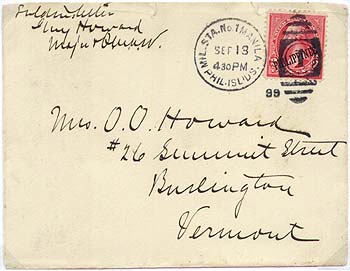 Soldier's letter
Guy Howard
Major & QM USV.
MIL. STA. No. 1 MANILA
SEP 13
430 PM
PHIL. ISLDS.
PHILIPPINES
99
Mrs. O. O. Howard
#26 Summit Street
Burlington
Vermont